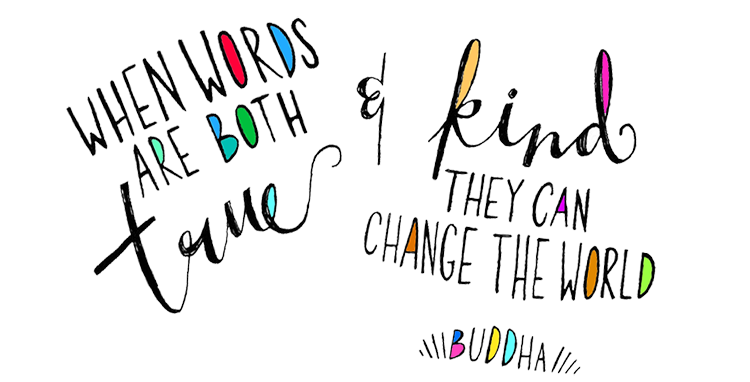 WHEN WORDS
ARE BOTH
true
& kind
THEY CAN
CHANGE THE WORLD
BUDDHA